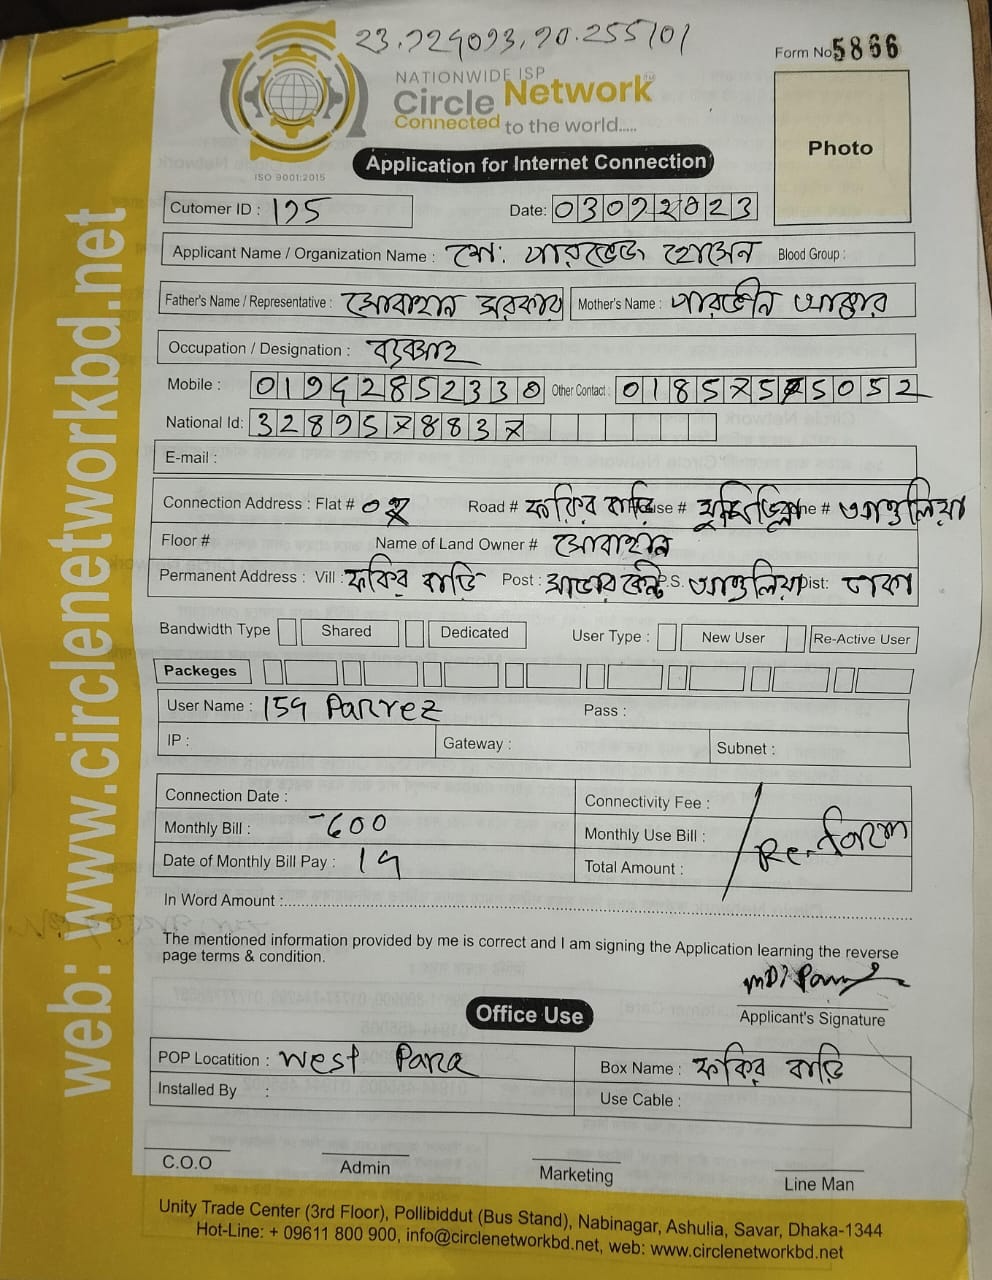 23.924093,90.255101
Form No 5866
NATIONWIDE ISP
Circle Network
Connected to the world.....
ISO 9001:2015
Application for Internet Connection
Photo
Cutomer ID : 195
Date: 03092023
Applicant Name / Organization Name : মো: পারভেজ হোসেন Blood Group :
Father's Name / Representative : সোবাহান সরকার Mother's Name : পারভীন আক্তার
Occupation / Designation : ব্যবসাহ
Mobile : 01942852330 Other Contact : 01857575052
National Id: 3289578837
E-mail :
Connection Address : Flat # 07 Road # ফকির বাড়ি House # Zone # আশুলিয়া
Floor # Name of Land Owner # সোবাহান
Permanent Address : Vill : ফকির বাড়ি Post : সাভার কেন্ট P.S. আশুলিয়া Dist: ঢাকা
Bandwidth Type Shared Dedicated User Type : New User Re-Active User
Packeges
User Name : 159 Parvez Pass :
IP : Gateway : Subnet :
Connection Date : Connectivity Fee :
Monthly Bill : 600 Monthly Use Bill :
Re-form
Date of Monthly Bill Pay : 19 Total Amount :
In Word Amount :
The mentioned information provided by me is correct and I am signing the Application learning the reverse
page terms & condition.
Applicant's Signature
Office Use
POP Locatition : West Para Box Name : ফকির বাড়ি
Installed By : Use Cable :
C.O.O Admin Marketing Line Man
Unity Trade Center (3rd Floor), Pollibiddut (Bus Stand), Nabinagar, Ashulia, Savar, Dhaka-1344
Hot-Line: + 09611 800 900, info@circlenetworkbd.net, web: www.circlenetworkbd.net
web: www.circlenetworkbd.net